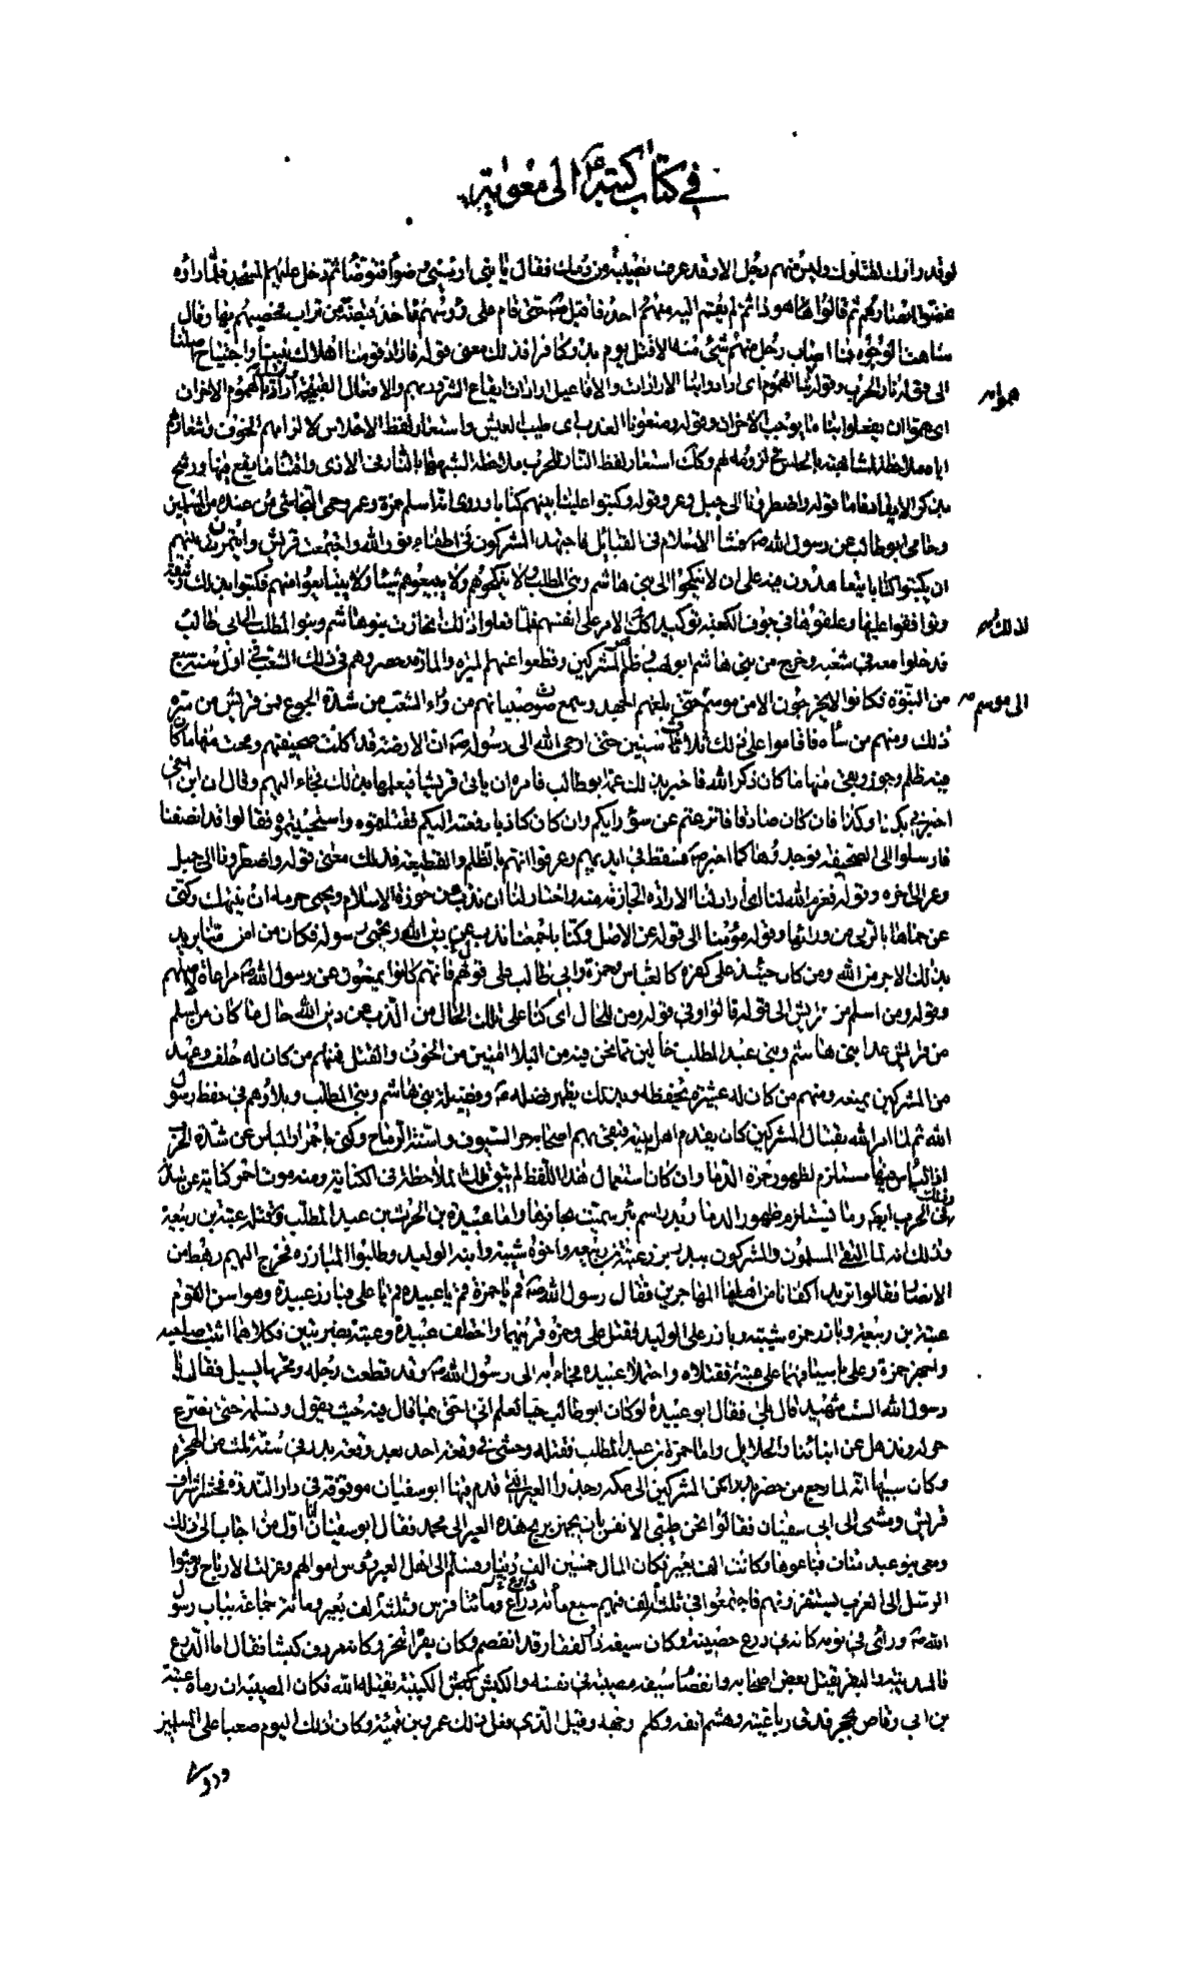 في كتاب كتبه ع الى معوية
لو قد راوك لقتلوك وليس منهم رجل الا وقد عرف نصيبه من دمك فقال يا بني اريتني وضوءا فتوضا ثم دخل عليهم المسجد فلما راوه
غضوا ابصارهم ثم قالوا ها هو ذا ثم لم يقم اليه منهم احد فاقبل ص حتى قام على رؤسهم فاخذ قبضة من تراب فحصبهم بها وقال
شاهت الوجوه فما اصاب رجل منهم شئ منه الا قتل يوم بدر كافرا فذلك معنى قوله فاراد قومنا اهلاك نبينا واجتياح اصلنا
الى قوله نار الحرب وقوله بنا الهموم اى ارادوا بنا الارادات والافاعيل ارادات ايقاع الشر بهم والافعال القبيحة الهموم الاحزان
هموا به
اى هموا ان يفعلوا بنا ما يوجب الاحزان وقوله ومنعونا العذب اى طيب العيش واستعار لفظ الاحلاس لالزامهم الخوف واشعارهم
اياه ملاحظة لمشابهته بالحلس في لزومه لهم وكذلك استعار لفظ النار للحرب ملاحظة لشبهها بالنار فى الاذى وافناء ما يقع فيها ورشح
بذكر الايقاد فاما قوله واضطرونا الى جبل وعر وقوله وكتبوا علينا بينهم كتابا روى انه لما اسلم حمزة وعمر وحمى النجاشى من عنده من المسلمين
وحامى ابو طالب عن رسول الله ص وفشا الاسلام فى القبائل فاجتهد المشركون فى اطفاء نور الله واجتمعت قريش وائتمرت بينهم
ان يكتبوا كتابا يتعاهدون فيه على ان لا ينكحوا الى بنى هاشم وبنى المطلب ولا ينكحوهم ولا يبيعوهم شيئا ولا يبتاعوا منهم فكتبوا بذلك وثيقة
وتوافقوا عليها وعلقوها فى جوف الكعبة توكيدا لذلك الامر على انفسهم فلما فعلوا ذلك انحازت بنو هاشم وبنو المطلب الى ابى طالب
لذلك
فدخلوا معه فى شعبه وخرج من بنى هاشم ابو لهب وظاهر المشركين وقطعوا عنهم الميرة والمارة وحصروهم فى ذلك الشعب فى اول سنة سبع
من النبوة فكانوا لا يخرجون الا من موسم حتى بلغهم الجهد وسمع صوت صبيانهم من وراء الشعب من شدة الجوع فمن قريش من سره
الى موسم
ذلك ومنهم من ساه فاقاموا على ذلك ثلاث سنين حتى اوحى الله الى رسوله ص ان الارضة قد اكلت صحيفتهم ومحت منها ما كان
فيه ظلم وجور وبقى منها ما كان ذكر الله فاخبر بذلك عمه ابو طالب فامره ان ياتى قريشا فيعلمها بذلك فجاء اليهم وقال ان ابن اخى
اخبرنى بكذا وكذا فان كان صادقا نزعتم عن سؤ رايكم وان كان كاذبا دفعته اليكم فقتلتموه واستحييتموه فقالوا قد انصفتنا
فارسلوا الى الصحيفة فوجدوها كما اخبر ص فسقط فى ايديهم وعرفوا انهم بالظلم والقطيعة فذلك معنى قوله واضطرونا الى جبل
وعر الى اخره وقوله فعزم الله لنا اى اراد لنا الارادة الجازمة منه واختار لنا ان نذب عن حوزة الاسلام ونحمى حرمه ان ينهتك وكنى
عن حماها بالرمى من ورائها وقوله مؤمننا الى قوله عن الاصل وكنا باجمعنا نذب عن دين الله ونحمى رسوله فكان من امن منا يريد
بذلك الاجر من الله ومن كان حينئذ على كفره كالعباس وحمزة وابى طالب على قول فانهم كانوا يمنعون عن رسول الله ص مراعاة لاصلهم
وقوله ومن اسلم من قريش الى قوله قالوا وفى قوله ومن للحال اى كنا على تلك الحال من الذب عن دين الله حال ما كان من اسلم
من قريش عدا بنى هاشم وبنى عبد المطلب خالين مما نحن فيه من البلاء آمنين من الخوف والقتل فمنهم من كان له حلف وعهد
من المشركين يمنعه ومنهم من كان له عشيرة تحفظه وبذلك يظهر فضله ص وفضيلة بنى هاشم وبنى المطلب وبلاؤهم فى حفظ رسول
الله ثم لما امر الله بقتال المشركين كان يقدم اهل بيته فيقى بهم اصحابه حر السيوف واسنة الرماح وكنى باحمرار الباس عن شدة الحرب
اذ الباس فيها مستلزم لظهور حمرة الدماء وان كان استعمال هذا اللفظ لم يبق تلك الملاحظة فى الكناية ومنه موت احمر كناية عن شدته
وذلك فى الحرب وبدر اسم بئر سميت بحافرها واما عبيدة بن الحرث بن عبد المطلب فقتله عتبة بن ربيعة
وذلك انه لما التقى المسلمون والمشركون ببدر برز عتبة بن ربيعة واخوه شيبة وابنه الوليد وطلبوا المبارزة فخرج اليهم رهط من
الانصار فقالوا نريد اكفائنا من المهاجرين فقال رسول الله ص قم يا حمزة قم يا عبيده قم يا على فبارز عبيدة وهو اسن القوم
عتبة بن ربيعة وبارز حمزه شيبة وبارز على الوليد فقتل على وحمزه قرنيهما واختلف عبيدة وعتبة بضربتين فكلاهما اثبت صاحبه
واجهز حمزة وعلى باسيافهما على عتبة فقتلاه واحتملا عبيده فجاءا به الى رسول الله ص وقد قطعت رجله ومخها يسيل فقال يا
رسول الله الست شهيدا قال بلى فقال ابو عبيدة لو كان ابو طالب حيا لعلم انى احق بما قال منه حيث يقول ونسلمه حتى نصرع
حوله ونذهل عن ابنائنا والحلايل واما حمزة بن عبد المطلب فقتله وحشى فى وقعة احد بعد وقعة بدر فى سنة ثلث من الهجرة
وكان سببها انه لما رجع من حضر بدرا من المشركين الى مكه وجدوا العير التى قدم بها ابو سفيان موقوفة فى دار الندوة فمشت اشراف
قريش ومشى الى ابى سفيان فقالوا نحن طيبى الانفس بان يجهز بربح هذه العير الى محمد فقال ابو سفيان انا اول من اجاب الى ذلك
ومعى بنو عبد مناف فباعوها وكانت الف بعير فكان المال خمسين الف دينار فسلم الى اهل العير رؤس اموالهم وعزلت الارباح وبعثوا
الرسل الى العرب يستنفرونهم فاجتمعوا فى ثلثة الاف فيهم سبع مائة دراع ومائتا فرس وثلثة الف بعير ومائة جماعة بباب رسول
الله ص وراى فى نومه كانه فى درع حصينة وكان سيفه ذا الفقار قد انقصم وكان بقرا تنحر وكانه مردف كبشا فقال اما الدرع
فالمدينة والبقر يقتل بعض اصحابه وانفصام سيفه مصيبة فى نفسه والكبش كبش الكتيبة يقتله الله فكان المصيبة ان رماه عتبة
بن ابى وقاص بحجر فدق رباعيته وهشم انفه وكلم وجهه وقيل الذى فعل ذلك عمرو بن قميئة وكان ذلك اليوم صعبا على المسلمين
وروى